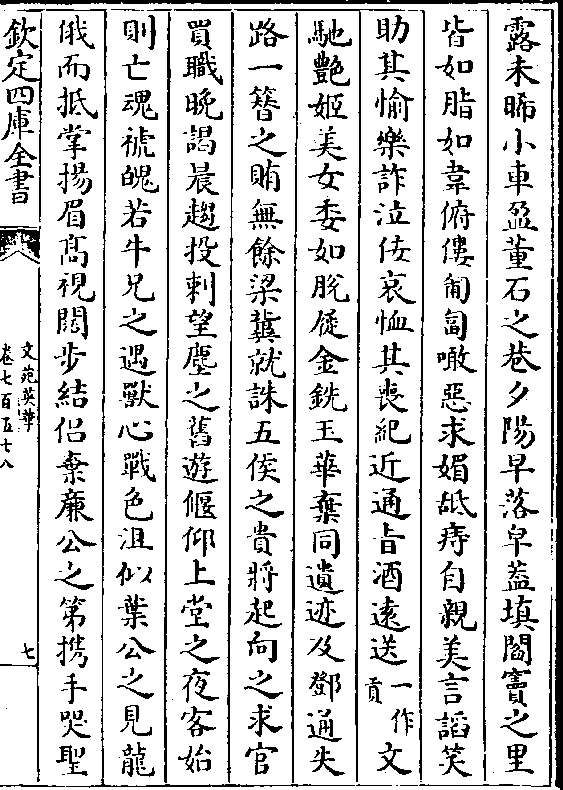 露未晞小車盈董石之巷夕陽早落皁蓋填閻竇之里
皆如脂如韋俯僂匍匐噉惡求媚䑛痔自親美言諂笑
助其愉樂詐泣佞哀恤其喪紀近通旨酒遠送一作貢文
馳艷姬美女委如脫屣金銑玉華棄同遺迹及鄧通失
路一簪之賄無餘梁冀就誅五侯之貴將起向之求官
買職晚謁晨趨投刺望塵之舊遊偃仰上堂之夜客始
則亡魂褫魄若牛兄之遇獸心戰色沮似葉公之見龍
俄而抵掌揚眉高視闊步結侶棄廉公之第携手哭聖
欽定四庫全書
文苑英華
卷七百五十八
七